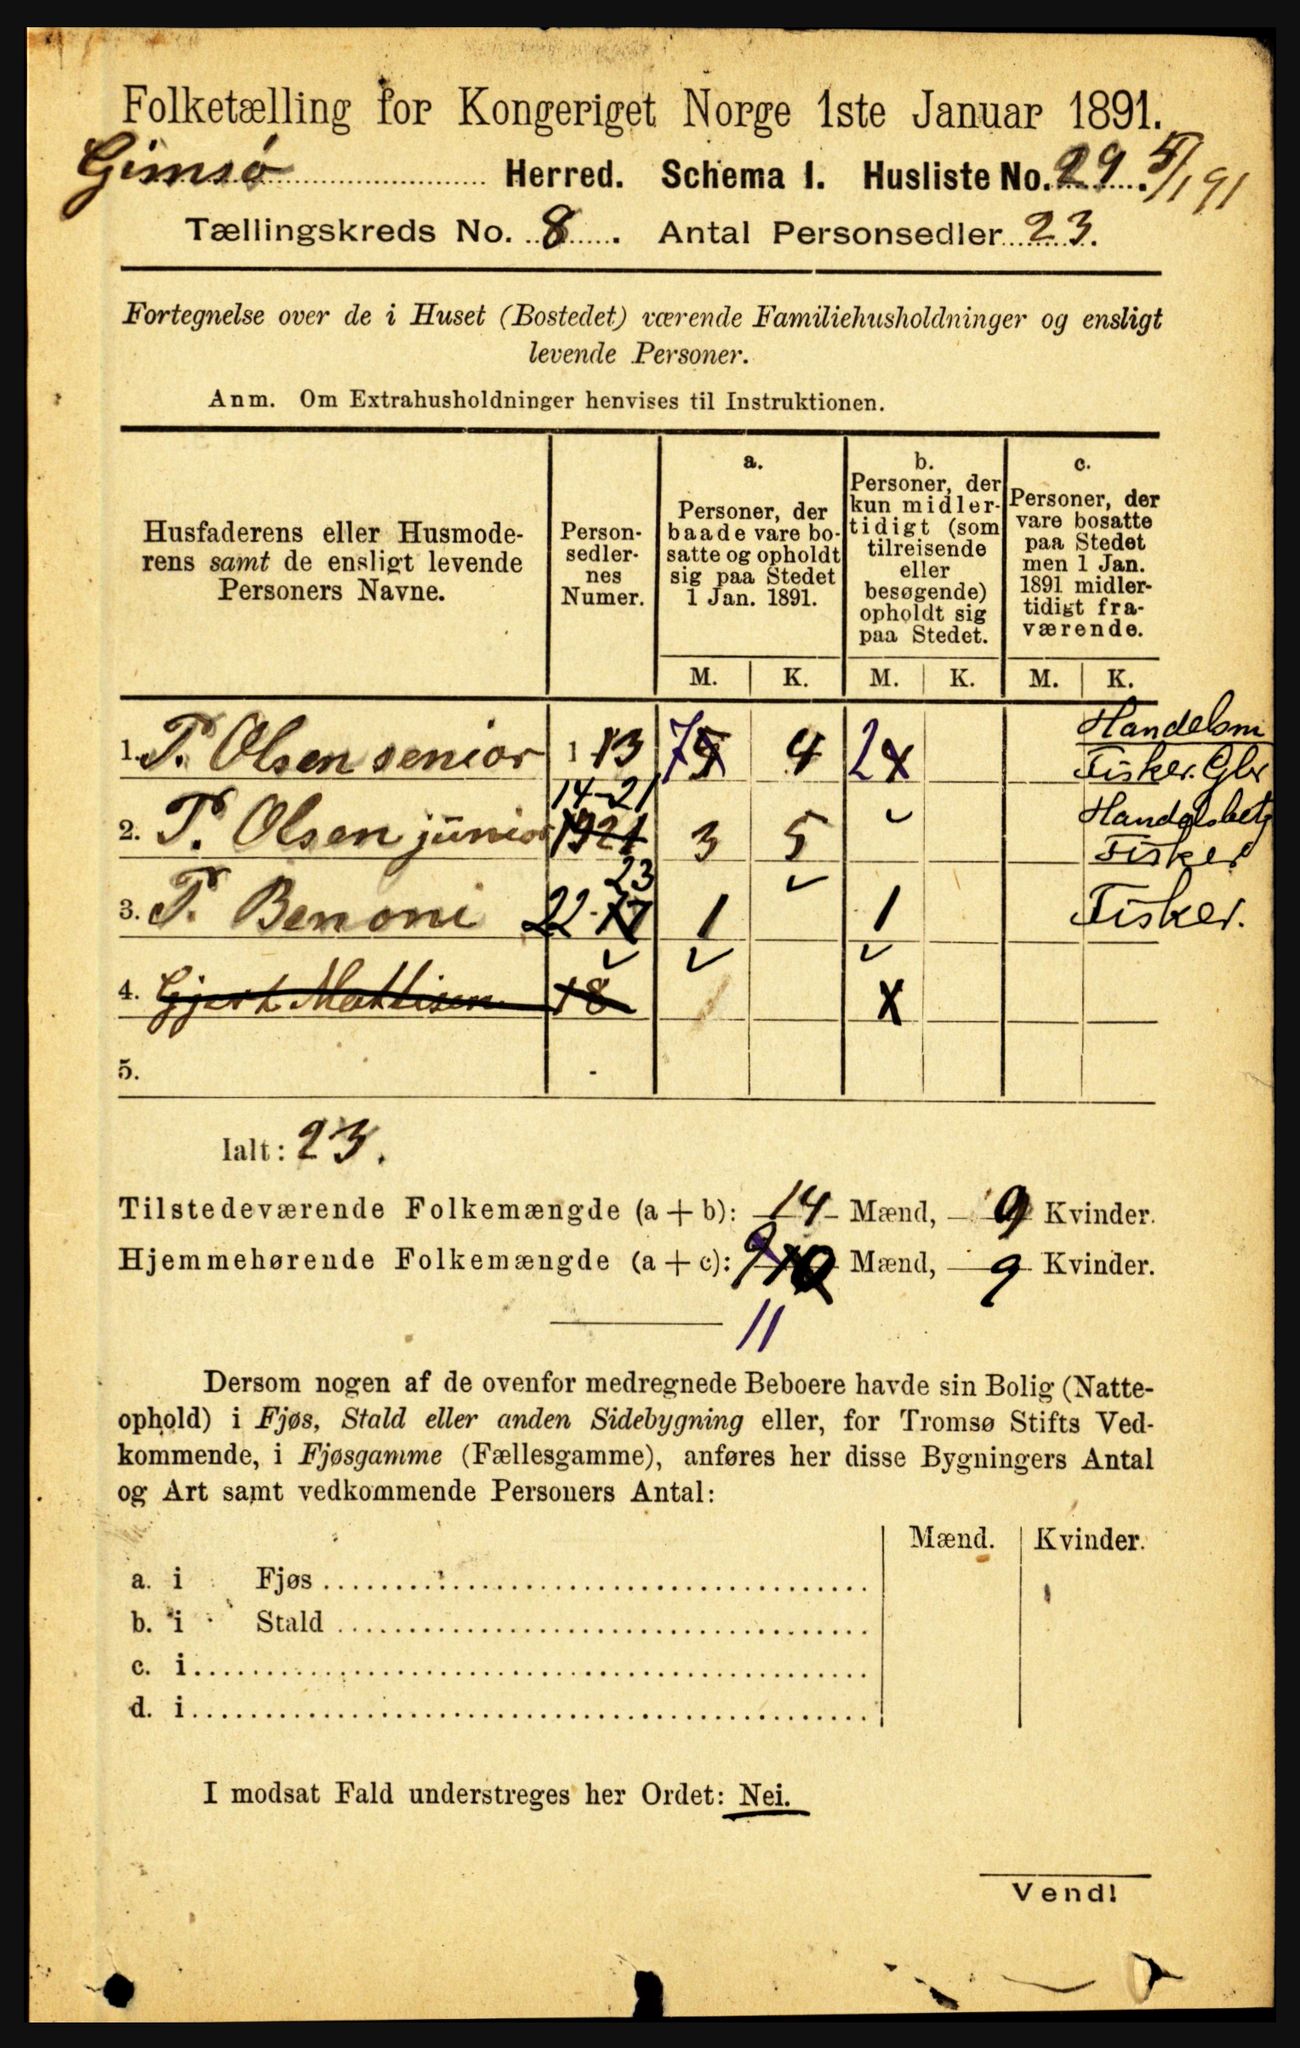 Folketælling for Kongeriget Norge 1ste Januar 1891.
Gimsø Herred. Schema 1. Husliste No. 29. 5/1 91
Tællingskreds No. 8. Antal Personsedler 23.
Fortegnelse over de i Huset (Bostedet) værende Familiehusholdninger og ensligt
levende Personer.
Anm. Om Extrahusholdninger henvises til Instruktionen.
Husfaderens eller Husmode-
rens samt de ensligt levende
Personers Navne.
Person-
sedler-
nes
Numer.
a.
Personer, der
baade vare bo-
satte og opholdt
sig paa Stedet
1 Jan. 1891.
b.
Personer, der
kun midler-
tidigt (som
tilreisende
eller
besøgende)
opholdt sig
paa Stedet.
c.
Personer, der
vare bosatte
paa Stedet
men 1 Jan.
1891 midler-
tidigt fra-
værende.
M. K. M. K. M. K.
1. P. Olsen senior 1 - 13 7 4 2 Handelsm
Fisker. Gbr
2. P. Olsen junior 14-21 3 5 Handelsbetj
Fisker
3. P. Benoni 22-23 1 1 Fisker.
4. Gjert Mattisen 18
5. -
Ialt: 23.
Tilstedeværende Folkemængde (a + b): 14 Mænd, 9 Kvinder.
Hjemmehørende Folkemængde (a + c): 9 10 Mænd, 9 Kvinder.
11
Dersom nogen af de ovenfor medregnede Beboere havde sin Bolig (Natte-
ophold) i Fjøs, Stald eller anden Sidebygning eller, for Tromsø Stifts Ved-
kommende, i Fjøsgamme (Fællesgamme), anføres her disse Bygningers Antal
og Art samt vedkommende Personers Antal:
Mænd. Kvinder.
a. i Fjøs
b. i Stald
c. i
d. i
I modsat Fald understreges her Ordet: Nei.
Vend!